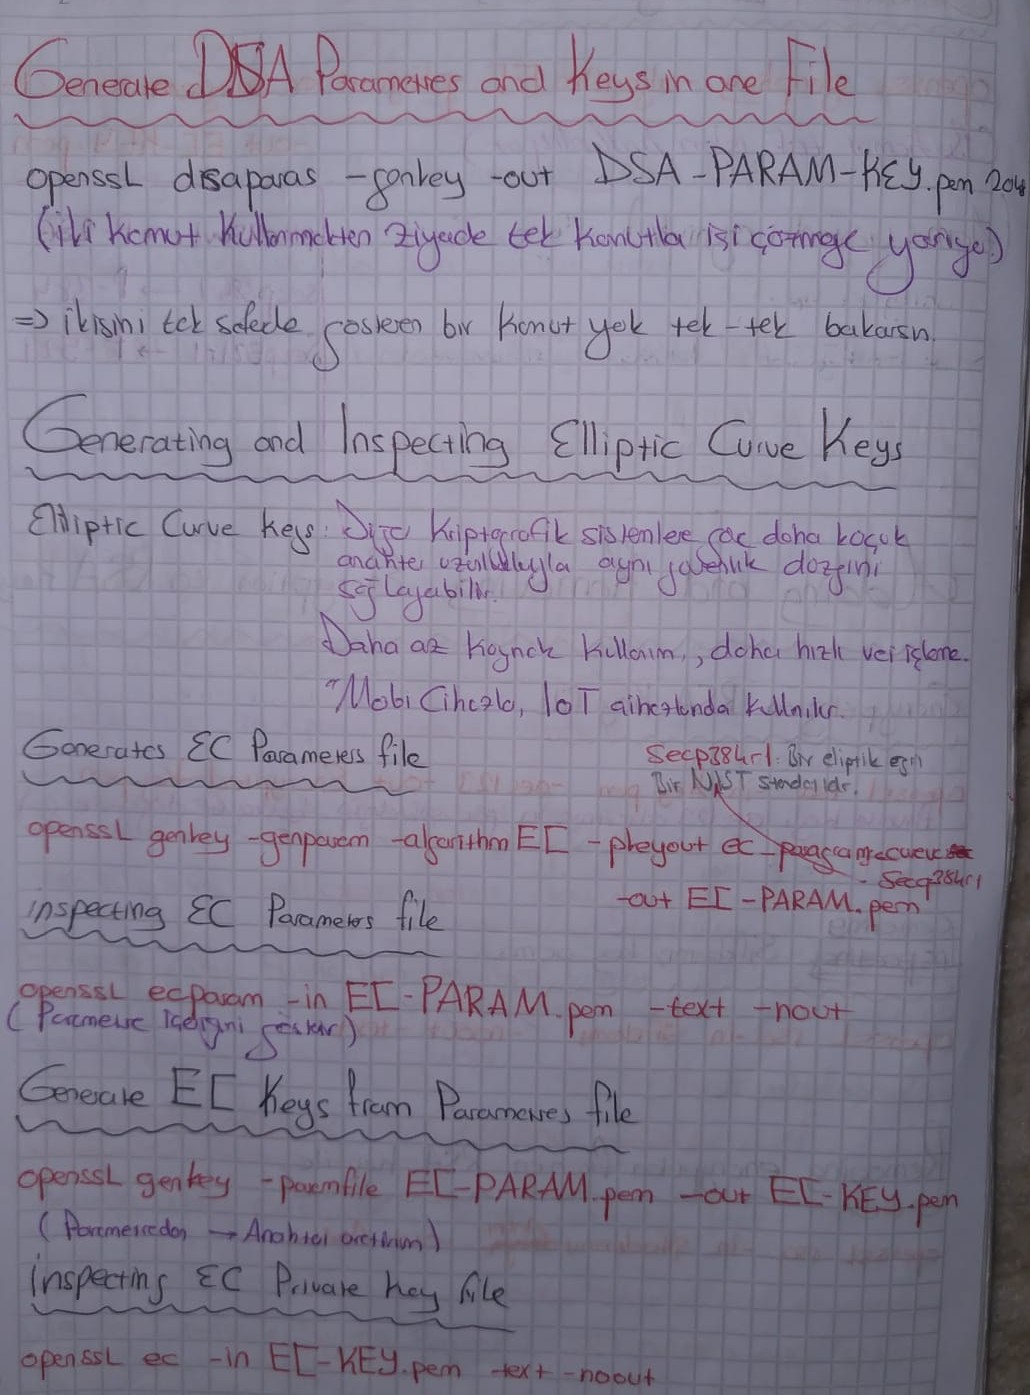 Generate DSA Parameters and Keys in one File
openssl dsaparas -genkey -out DSA-PARAM-KEY.pem 2048
(iki komut kullanmakten ziyade tek komutla işi çözmeye yarıyo)
=> ikisini tek sefede gösteren bir komut yok tek-tek bakarsın.
Generating and Inspecting Elliptic Curve Keys
Elliptic Curve Keys: Diğe kriptografik sistemlere göe daha koçuk
anahte uzunlukluyla aynı güvenlik dozeyini
sağlayabilir.
Daha az kaynak kullanım, daha hızlı vei işleme.
"Mobi Cihazla, IoT cihazlanda kullnılır.
Generates EC Parameters file
Secp384r1: Bir eliptik eğri
Bir NIST standadıdır.
openssl genkey -genparam -algorithm EC -pkeyout ec-paragram-curve
-Secp384r1
-out EC-PARAM.pem
inspecting EC Parameters file
openssl ecparam -in EC-PARAM.pem -text -nout
(Parametre içeriğni göster)
Generate EC Keys from Parameters file
openssl genkey -paramfile EC-PARAM.pem -out EC-KEY.pem
(Parametreden → Anahtar üretirim)
inspecting EC Private key file
openssl ec -in EC-KEY.pem -text -noout